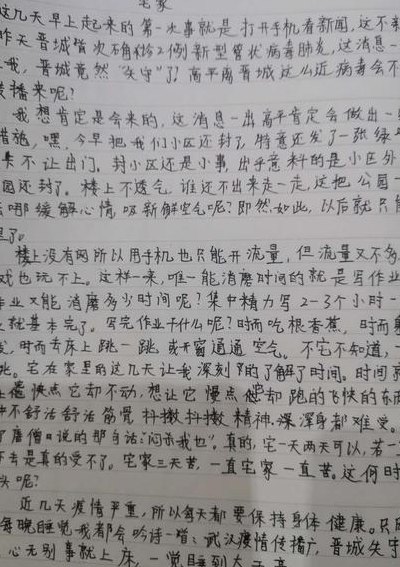 宅家
这几天早上起来的第一次事就是打开手机看新闻,这不看
昨天晋城首次确诊2例新型冠状病毒肺炎,这消息一
我,晋城竟然"失守"了!高平离晋城这么近病毒会不
传播来呢?
我想肯定是会来的,这消息一出高平肯定会做出一
措施,嘿,今早把我们小区还封了,特意还发了一张绿
卡不让出门。封小区还是小事,出乎意料的是小区外
园还封了。楼上不透气,谁还不出来走一走,这把公园一
去哪缓解心情,吸新鲜空气呢?即然如此,以后就只能
里了。
楼上没有网所以用手机也只能开流量,但流量又不多
戏也玩不上。这样一来,唯一能消磨时间的就是写作业
作业又能消磨多少时间呢?集中精力写2-3个小时一
上就基本完了。写完作业干什么呢?时而吃根香蕉,时而
时而去床上跳一跳,或开窗通通空气。不宅不知道,一
宅在家里的这几天让我深刻的了解了时间。时间
让它快点它却不动,想让它慢点它却跑的飞快的东西
不舒活舒活筋骨抖擞抖擞精神浑身都难受。
了唐僧曰说的那句话:"闷杀我也"。真的,宅一天两天可以,若一
下去是真的受不了。宅家三天苦,一直宅家一直苦。这何时
头呢?
近几天疫情严重,所以每天都要保持身体健康。只
每晚睡觉我都会吟诗一首、武汉疫情传播广,晋城失守
心无别事就上床,一觉睡到大天亮